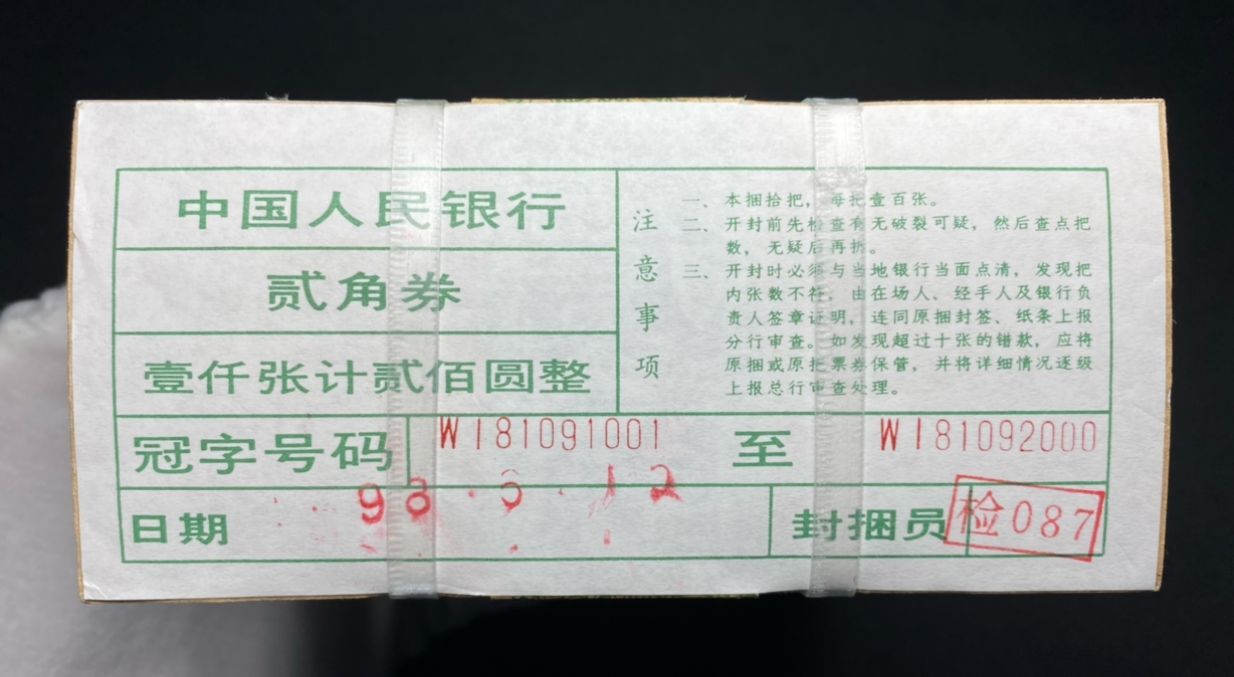 中国人民银行
贰角券
壹仟张计贰佰圆整
注意事项
一、本捆拾把，每把壹百张。
二、开封前先检查有无破裂可疑，然后查点把
数，无疑后再拆。
三、开封时必须与当地银行当面点清，发现把
内张数不符，由在场人、经手人及银行负
责人签章证明，连同原捆封签、纸条上报
分行审查。如发现超过十张的错款，应将
原捆或原把票券保管，并将详细情况逐级
上报总行审查处理。
冠字号码 WI81091001 至 WI81092000
日期 98. . 12
封捆员 检087